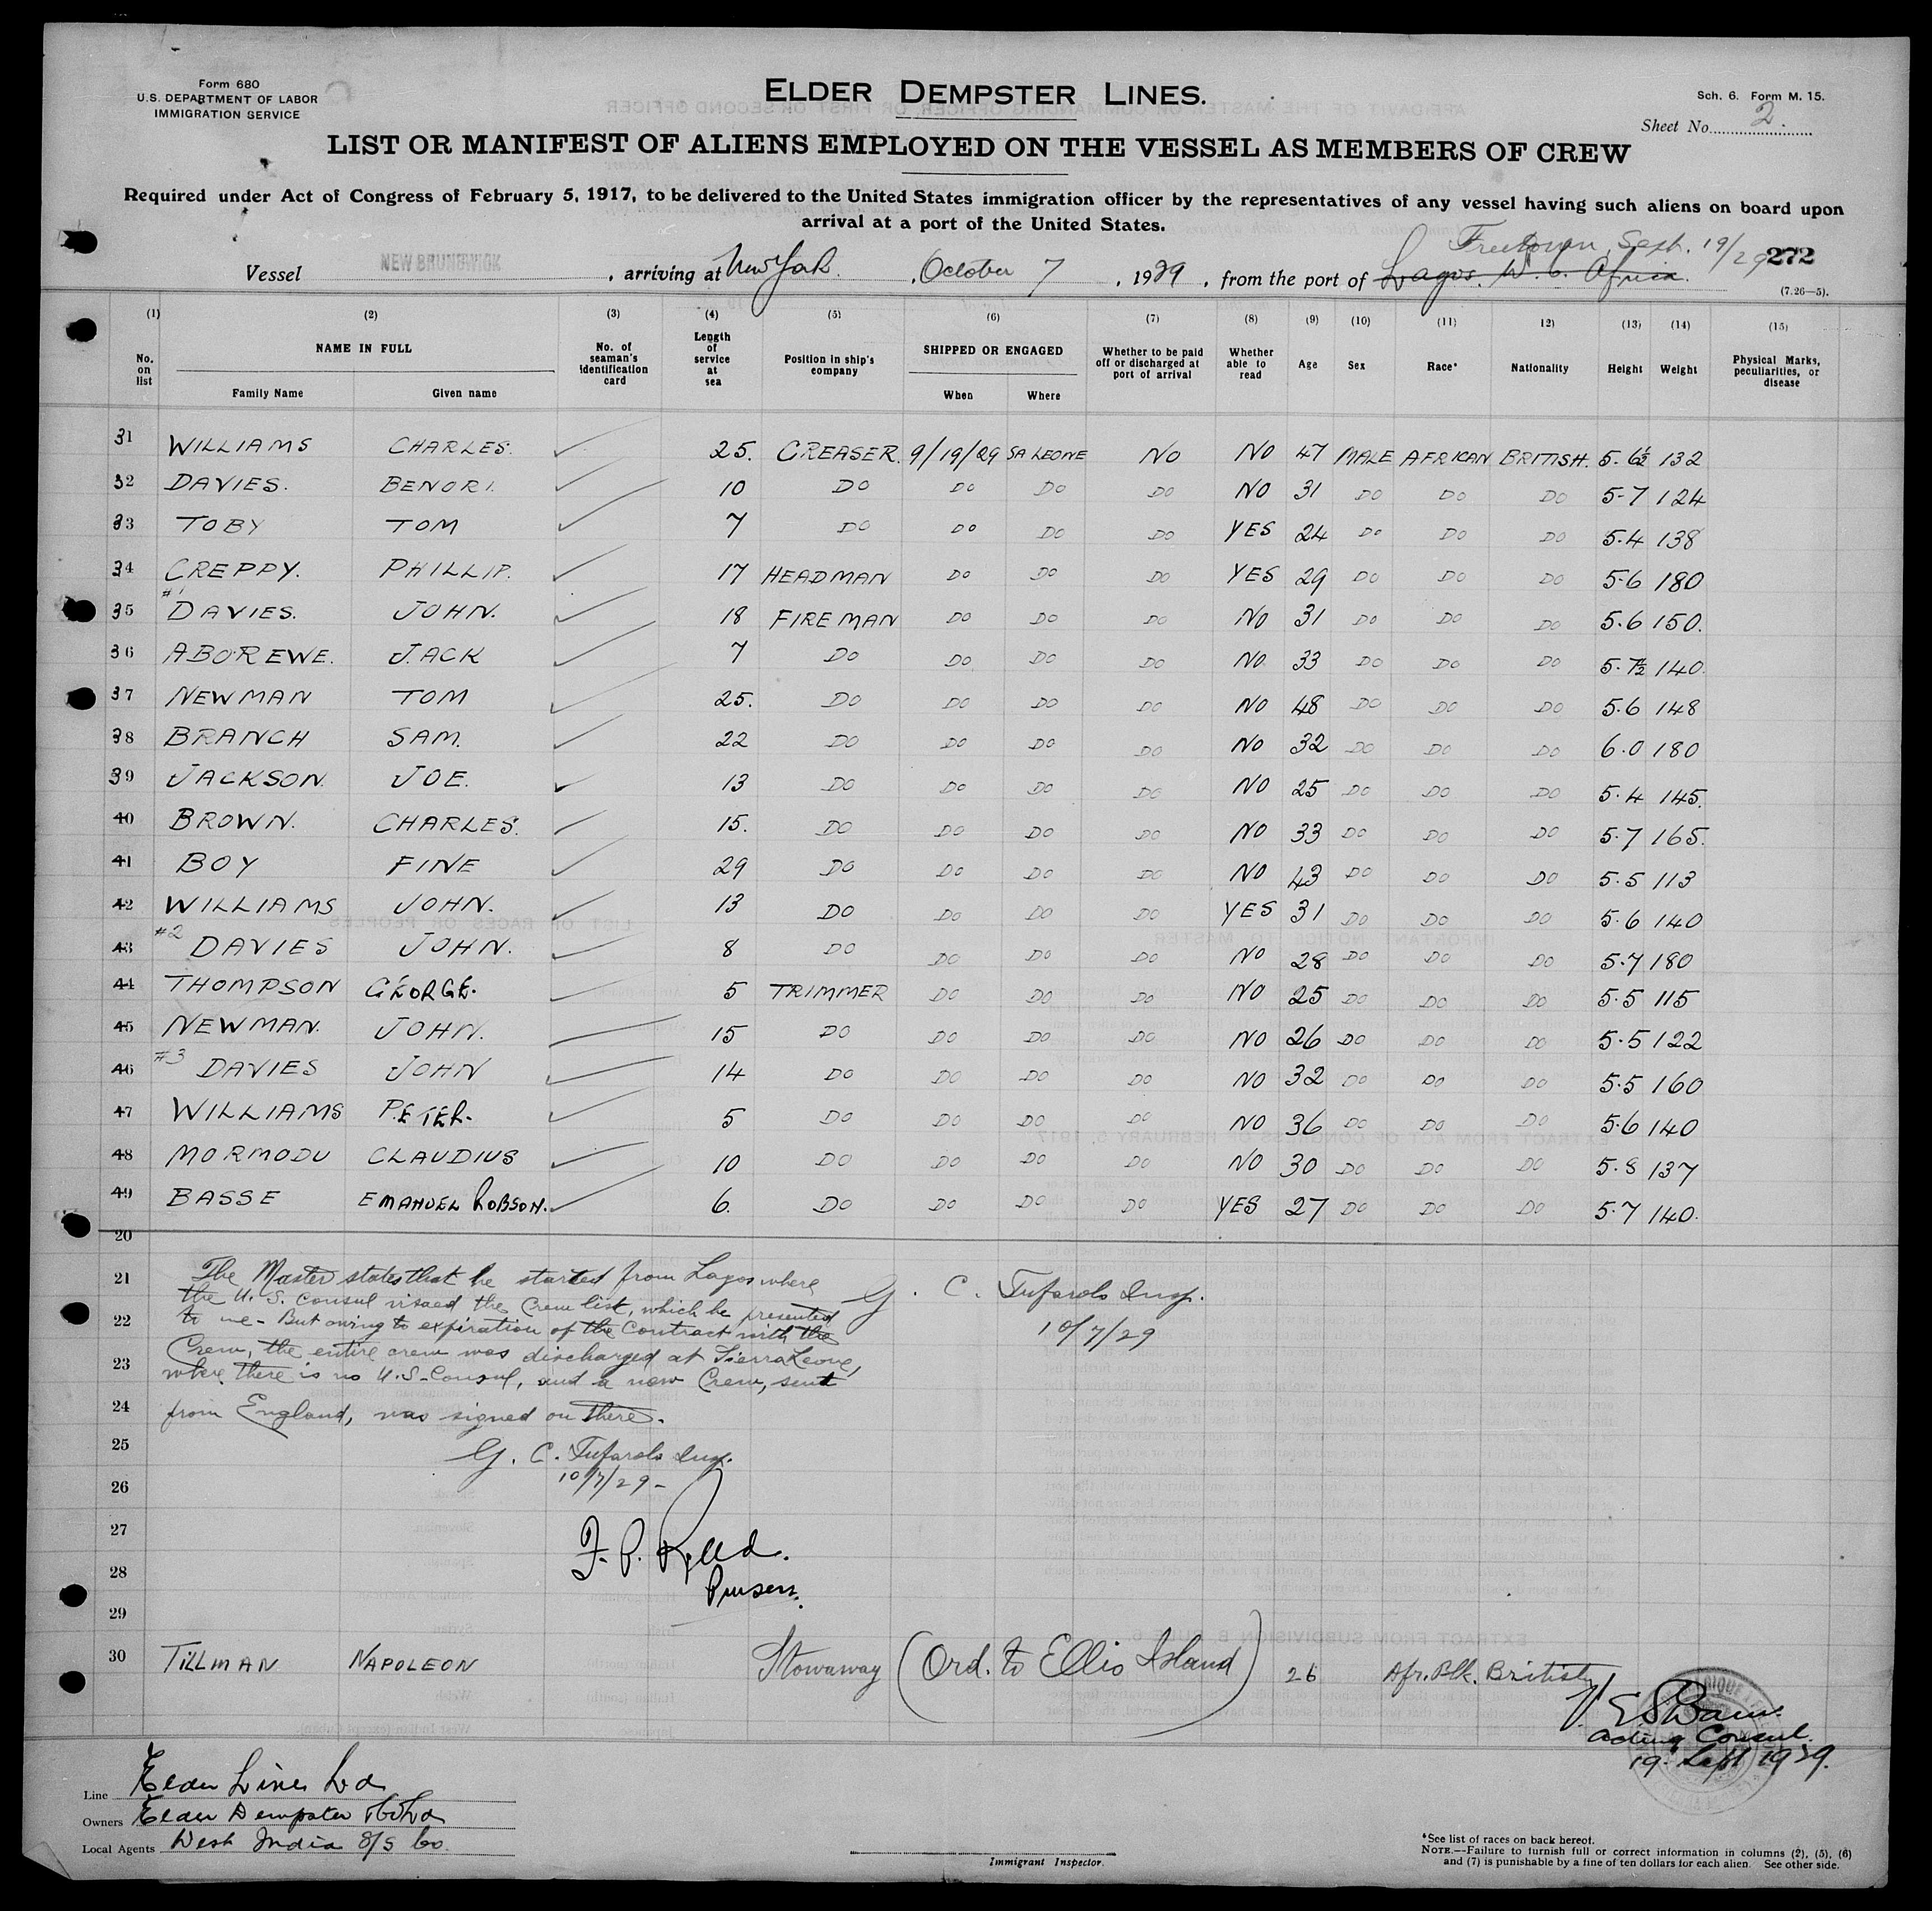 Form 680
U.S. DEPARTMENT OF LABOR
IMMIGRATION SERVICE
ELDER DEMPSTER LINES.
Sch. 6. Form M. 15.
Sheet No. 2
LIST OR MANIFEST OF ALIENS EMPLOYED ON THE VESSEL AS MEMBERS OF CREW
Required under Act of Congress of February 5, 1917, to be delivered to the United States immigration officer by the representatives of any vessel having such aliens on board upon
arrival at a port of the United States.
Freetown, Sept. 19/29 272
Vessel NEW BRUNSWICK, arriving at New York, October 7, 1929, from the port of Lagos. W. C. Africa.
(7.26—5).
(1) (2) (3) (4) (5) (6) (7) (8) (9) (10) (11) 12) (13) (14) (15)
No. on list NAME IN FULL Family Name Given name No. of seaman's identification card Length of service at sea Position in ship's company SHIPPED OR ENGAGED When Where Whether to be paid off or discharged at port of arrival Whether able to read Age Sex Race* Nationality Height Weight Physical Marks, peculiarities, or disease
31 WILLIAMS CHARLES. 25. GREASER. 9/19/29 SA LEONE NO NO 47 MALE AFRICAN BRITISH. 5.6½ 132
32 DAVIES. BENORI. 10 DO DO DO DO NO 31 DO DO DO 5-7 124
33 TOBY TOM 7 DO DO DO DO YES 24 DO DO DO 5.4 138
34 CREPPY. PHILLIP. 17 HEADMAN DO DO DO YES 29 DO DO DO 5-6 180
35 #1 DAVIES. JOHN. 18 FIREMAN DO DO DO NO 31 DO DO DO 5.6 150.
36 ABOREWE. JACK 7 DO DO DO DO NO. 33 DO DO DO 5.7½ 140.
37 NEWMAN TOM 25. DO DO DO DO NO 48 DO DO DO 5.6 148
38 BRANCH SAM. 22 DO DO DO DO NO 32 DO DO DO 6.0 180
39 JACKSON. JOE. 13 DO DO DO DO NO 25 DO DO DO 5.4 145.
40 BROWN. CHARLES. 15. DO DO DO DO NO 33 DO DO DO 5.7 165.
41 BOY FINE 29 DO DO DO DO NO 43 DO DO DO 5.5 113
42 WILLIAMS JOHN. 13 DO DO DO DO YES 31 DO DO DO 5.6 140
43 #2 DAVIES JOHN. 8 DO DO DO DO NO 28 DO DO DO 5.7 180
44 THOMPSON GEORGE. 5 TRIMMER DO DO DO NO 25 DO DO DO 5.5 115
45 NEWMAN. JOHN. 15 DO DO DO DO NO 26 DO DO DO 5.5 122
46 #3 DAVIES JOHN 14 DO DO DO DO NO 32 DO DO DO 5.5 160
47 WILLIAMS PETER. 5 DO DO DO DO NO 36 DO DO DO 5.6 140
48 MORMODU CLAUDIUS 10 DO DO DO DO NO 30 DO DO DO 5.8 137
49 BASSE EMANUEL ROBSON. 6. DO DO DO DO YES 27 DO DO DO 5.7 140.
20
21 The Master states that he started from Lagos where
the U.S. Consul visaed the Crew list, which he presented
22 to me - But owing to expiration of the Contract with the
Crew, the entire crew was discharged at Sierra Leone,
23 where there is no U.S. Consul, and a new Crew, sent
24 from England, was signed on there.
G. C. Tufarolo Insp.
10/7/29
25 G. C. Tufarolo Insp.
10/7/29 -
26
27 F. P. Reed.
28 Purser.
29
30 TILLMAN NAPOLEON Stowaway (Ord. to Ellis Island) 26 Afr. Blk. British
Acting Consul.
19. Sept 1929.
Line Elder Lines Ld
Owners Elder Dempster & Co Ld
Local Agents West India S/S Co.
Immigrant Inspector.
*See list of races on back hereof.
NOTE.—Failure to furnish full or correct information in columns (2), (5), (6)
and (7) is punishable by a fine of ten dollars for each alien. See other side.